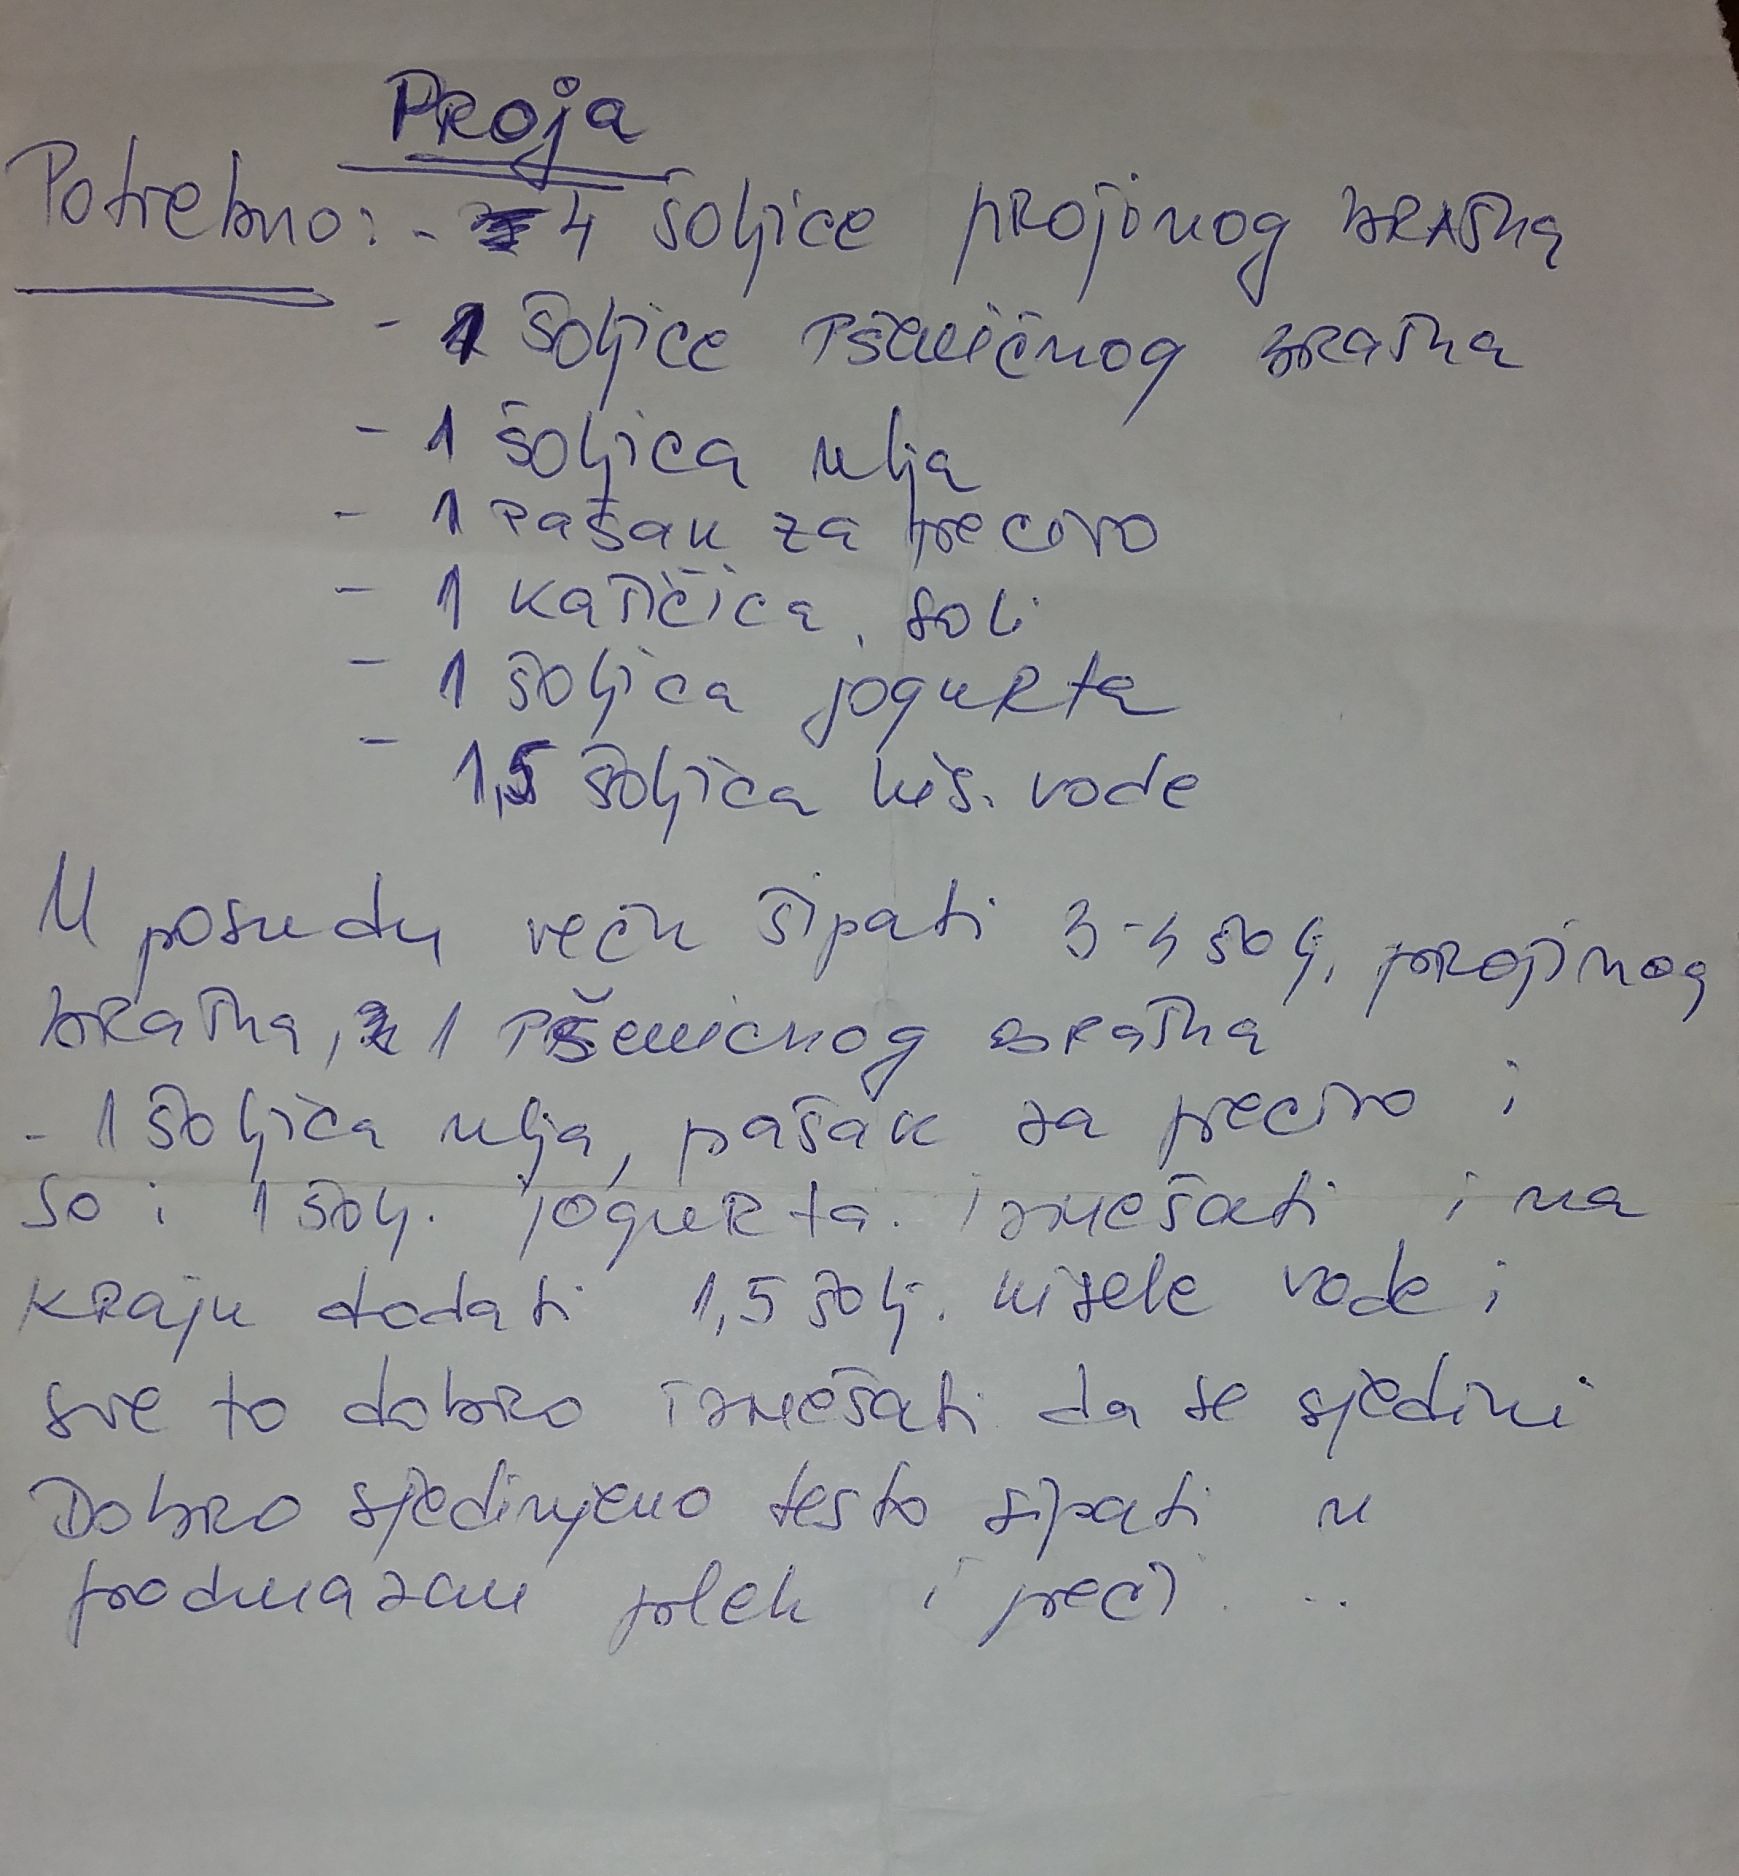 Proja
Potrebno: - 4 šoljice projinog brašna
- 1 šoljice pšeničnog brašna
- 1 šoljica ulja
- 1 pašak za pecivo
- 1 kašičica soli
- 1 šoljica jogurta
- 1,5 šoljica kis. vode
U posudu veću sipati 3-4 šolj. projinog
brašna, 1 pšeničnog brašna
- 1 šoljica ulja, pašak za pecivo i
so i 1 šolj. jogurta. izmešati i na
kraju dodati 1,5 šolj. kisele vode i
sve to dobro izmešati da se sjedini
Dobro sjedinjeno testo sipati u
podmazan pleh i peći...